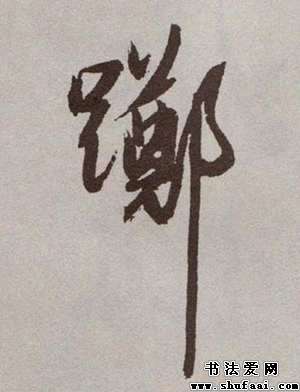 躑
书法爱网
www.shufaai.com